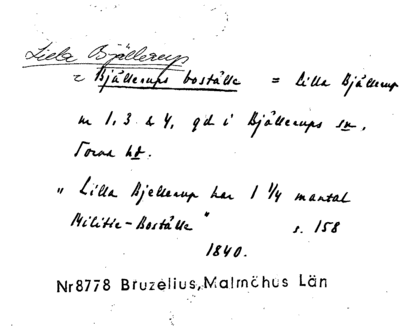 Lilla Bjällerup
= Bjällerups boställe = Lilla Bjällerup
nr 1, 3 & 4, gd i Bjällerups sn.
Torna hd.
"Lilla Bjellerup har 1 1/4 mantal
Militie-Boställe" s. 158
1840.
Nr8778 Bruzelius, Malmöhus Län